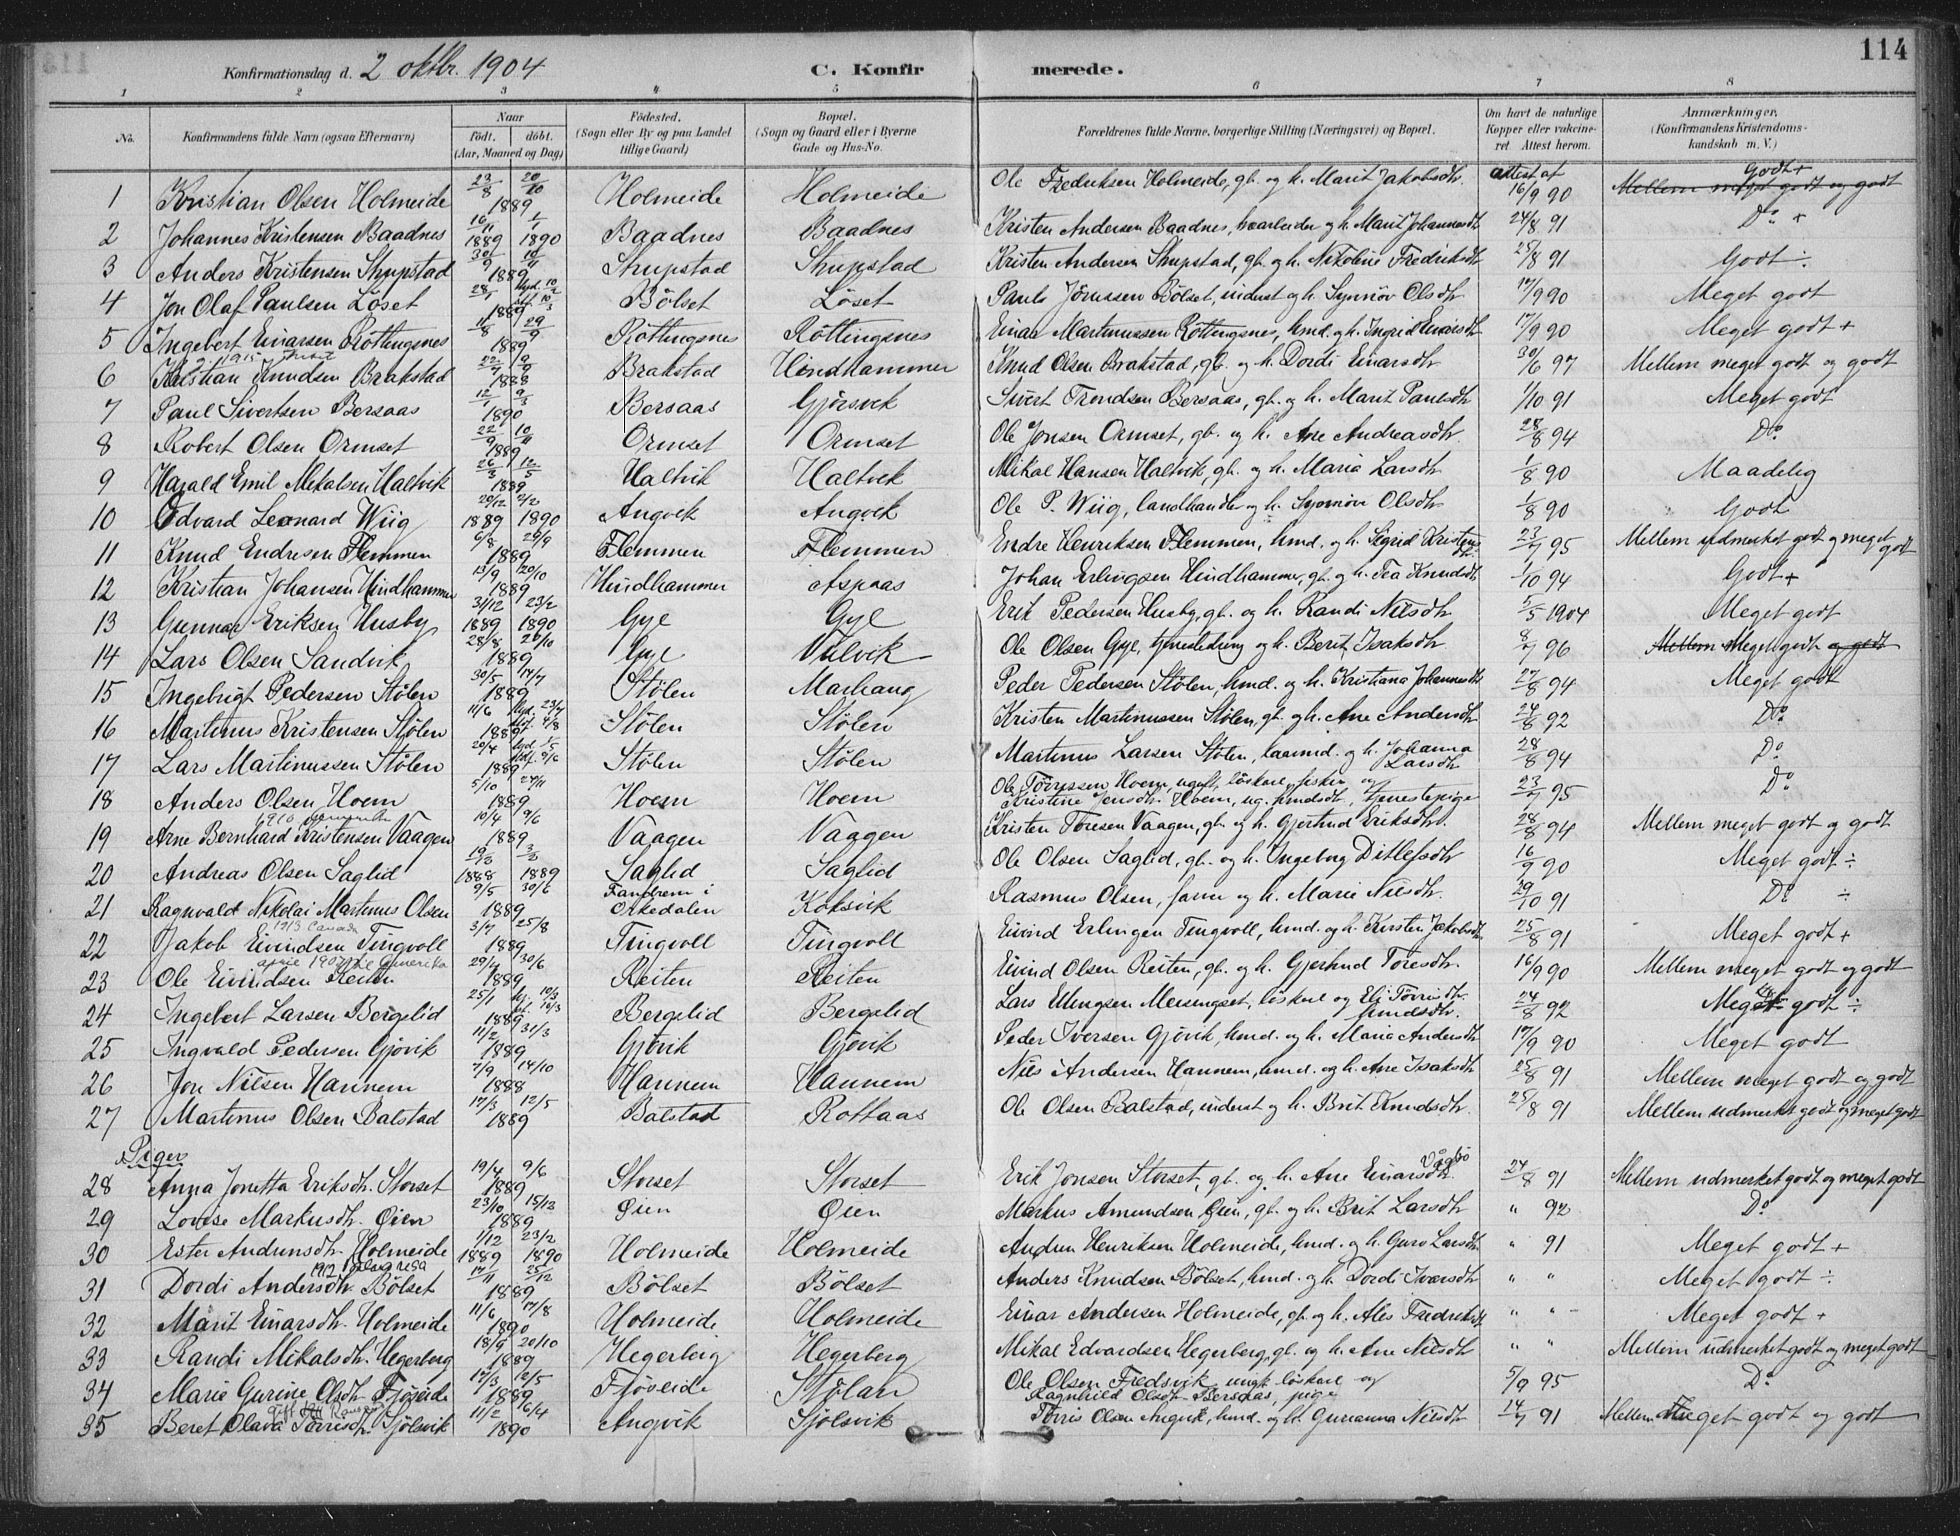 114
Konfirmationsdag d. 2 oktbr. 1904 C. Konfirmerede.
1 2 3 4 5 6 7 8
No. Konfirmandens fulde Navn (ogsaa Efternavn) Naar født. døbt. (Aar, Maaned og Dag) Fødested. (Sogn eller By og paa Landet tillige Gaard) Bopæl. (Sogn og Gaard eller i Byerne Gade og Hus-No. Forældrenes fulde Navne, borgerlige Stilling (Næringsvei) og Bopæl. Om havt de naturlige Kopper eller vakcineret. Attest herom. Anmærkninger. (Konfirmandens Kristendomskundskab m. V.)
1 Kristian Olsen Holmeide 23/8 20/10 1889 Holmeide Holmeide Ole Fredriksen Holmeide, gb. og h. Marit Jakobsdtr. attest af 16/9 90 Mellem meget godt og godt Godt +
2 Johannes Kristensen Baadnes 16/11 1889 1/1 1890 Baadnes Baadnes Kristen Andersen Baadnes, og h. Marit Johannesdtr 24/8 91 Do +
3 Anders Kristensen Strupstad 30/9 10/11 1889 Strupstad Strupstad Kristen Andersen Strupstad, gb. og h. Nikoline Fredriksdtr 25/8 91 Godt ÷
4 Jon Olaf Paulsen Löset 28/1 hjd. 10/2 stf. 10/3 1889 Bölset Löset Paul Jörnssen Bölset, inderst og h. Synnöv Olsdtr 17/9 90 Meget godt
5 Ingebert Einarsen Röttingsnes 11/8 29/9 1889 Röttingsnes Röttingsnes Einar Martinussen Röttingsnes, hmd. og h. Ingrid Einarsdtr 17/9 90 Meget godt +
6 Kristian Knudsen Brakstad 22/7 9/9 1888 Brakstad Hindhammer Knud Olsen Brakstad, gb. og h. Dordi Einarsdtr 30/6 97 Mellem meget godt og godt
7 Paul Sivertsen Bersaas 12/1 9/3 1890 Bersaas Gjörsvik Sivert Trondsen Bersaas, gb. og h. Marit Paulsdtr 1/10 91 Meget godt
8 Robert Olsen Ormset 22/9 10/11 1889 Ormset Ormset Ole Jonsen Ormset, gb. og h. Ane Andreasdtr. 28/8 94 Do
9 Harald Emil Mikalsen Haltvik 26/3 12/5 1889 Haltvik Haltvik Mikal Hansen Haltvik, gb. og h. Maria Larsdtr 1/8 90 Maadelig
10 Edvard Leonard Wiig 29/12 1889 2/2 1890 Angvik Angvik Ole P. Wiig, landhandler og h. Synnöve Olsdtr 1/8 90 Godt
11 Knud Endresen Flemmen 6/8 29/9 1889 Flemmen Flemmen Endre Henriksen Flemmen, hmd. og h. Sigrid Kristensdtr. 23/7 95 Mellem udmerket godt og meget godt
12 Kristian Johansen Hindhammer 13/9 20/10 1889 Hindhammer Aspaas Johan Erlingsen Hindhammer, gb. og h. Tea Knudsdtr 1/10 94 Godt +
13 Gunnar Eriksen Husby 31/12 1889 23/2 1890 Gyl Gyl Erik Pedersen Husby, gb. og h. Randi Nilsdtr. 5/5 1904 Meget godt
14 Lars Olsen Sandvik 28/8 20/10 1889 Gyl Vulvik Ole Olsen Gyl, og h. Berit Isaksdtr. 8/7 96 Mellem Meget godt og godt
15 Ingebrigt Pedersen Stölen 30/5 14/7 1889 Stölen Marhaug Peder Pedersen Stölen, hmd. og h. Kristiana Johannesdtr 27/8 94 Meget godt
16 Martinus Kristensen Stölen 11/6 hjd. 23/7 stf. 4/8 1889 Stölen Stölen Kristen Martinussen Stölen, gb. og h. Ane Andersdtr 24/8 92 Do
17 Lars Martinussen Stölen 20/4 1889 Stölen Stölen Martinus Larsen Stölen, og h. Johanna Larsdtr 28/8 94 Do
18 Anders Olsen Hoem 5/10 24/11 1889 Hoem Hoem Ole Törressen Hoem, ugift, löskarl, fisker og Kristine Jensdtr. Hoem, ug. hmdsdtr, tjenestepige 23/7 95 Do
19 Arne Bernhard Kristensen Vaagen 10/4 9/6 1889 Vaagen Vaagen Kristen Toresen Vaagen, gb. og h. Gjertrud Eriksdtr. 28/8 94 Mellem meget godt og godt
20 Andreas Olsen Saglid 1888 1889 Saglid Saglid Ole Olsen Saglid, gb. og h. Ingeborg Ditlefsdtr 16/9 90 Meget godt ÷
21 Ragnvald Nikolai Martinus Olsen 9/5 30/6 1889 Fandrem i Orkedalen Koksvik Rasmus Olsen, og h. Marie Nilsdtr. 29/10 91 Do ÷
22 Jakob Eivindsen Tingvoll 1913 Canada 3/7 25/8 1889 Tingvoll Tingvoll Eivind Erlingsen Tingvoll, hmd. og h. Kirsten Jakobsdtr. 25/8 91 Meget godt +
23 Ole Eivindsen Reiten 29/4 30/6 1889 Reiten Reiten Eivind Olsen Reiten, gb. og h. Gjertrud Toresdtr. 16/9 90 Mellem meget godt og godt
24 Ingebert Larsen Bergelid 25/1 1889 Bergelid Bergelid Lars Ellingsen Meisingset, löskarl og Eli Törrisdtr. hmdsdtr. 24/8 92 Meget godt ÷
25 Ingvald Pedersen Gjövik 11/2 31/3 1889 Gjövik Gjövik Peder Iversen Gjövik, hmd. og h. Maria Andersdtr 17/9 90 Meget godt
26 Jon Nilsen Hannem 7/9 14/10 1888 Hannem Hannem Nils Andersen Hannem, hmd. og h. Ane Isaksdtr 25/8 91 Mellem meget godt og godt
27 Martinus Olsen Balstad 17/3 12/5 1889 Balstad Rottaas Ole Olsen Balstad, inderst og h. Brit Knudsdtr. 25/8 91 Mellem udmerket godt og meget godt
Piger
28 Anna Jonetta Eriksdtr. Storset 19/4 9/6 1889 Storset Storset Erik Jonsen Storset, gb. og h. Ane Einarsdtr. 24/8 91 Mellem udmerket godt og meget godt
29 Lovise Markusdtr. Øien 23/10 15/12 1889 Øien Øien Markus Amundsen Øien, gb. og h. Brit Larsdtr " 92 Do
30 Ester Andrinsdtr. Holmeide 1/12 1889 23/2 1890 Holmeide Holmeide Andrin Henriksen Holmeide, hmd. og h. Guro Larsdtr " 91 Meget godt +
31 Dordi Andersdtr. Bölset 17/11 25/12 1889 Bölset Bölset Anders Knudsen Bölset, hmd. og h. Dordi Ivarsdtr " " Meget godt ÷
32 Marit Einarsdtr. Holmeide 11/6 17/8 1890 Holmeide Holmeide Einar Andersen Holmeide, gb. og h. Ales Fredriksdt " " Meget godt +
33 Randi Mikalsdtr. Hegerberg 18/9 20/10 1889 Hegerberg Hegerberg Mikal Edvardsen Hegerberg, gb. og h. Ane Nilsdtr " " Mellem udmerket godt og meget godt
34 Marie Gurine Olsdtr. Fjöseide 17/3 12/5 1889 Fjöseide Stölan Ole Olsen Fredsvik ungk. löskarl og Ragnhild Olsdtr Bersaas, pige 5/9 95 Do
35 Beret Olava Törrisdtr. Sjölsvik 11/2 6/4 1890 Angvik Sjölsvik Törris Olsen Angvik, hmd. og h. Gurianna Nilsdtr 14/7 91 Mellem Meget godt og godt